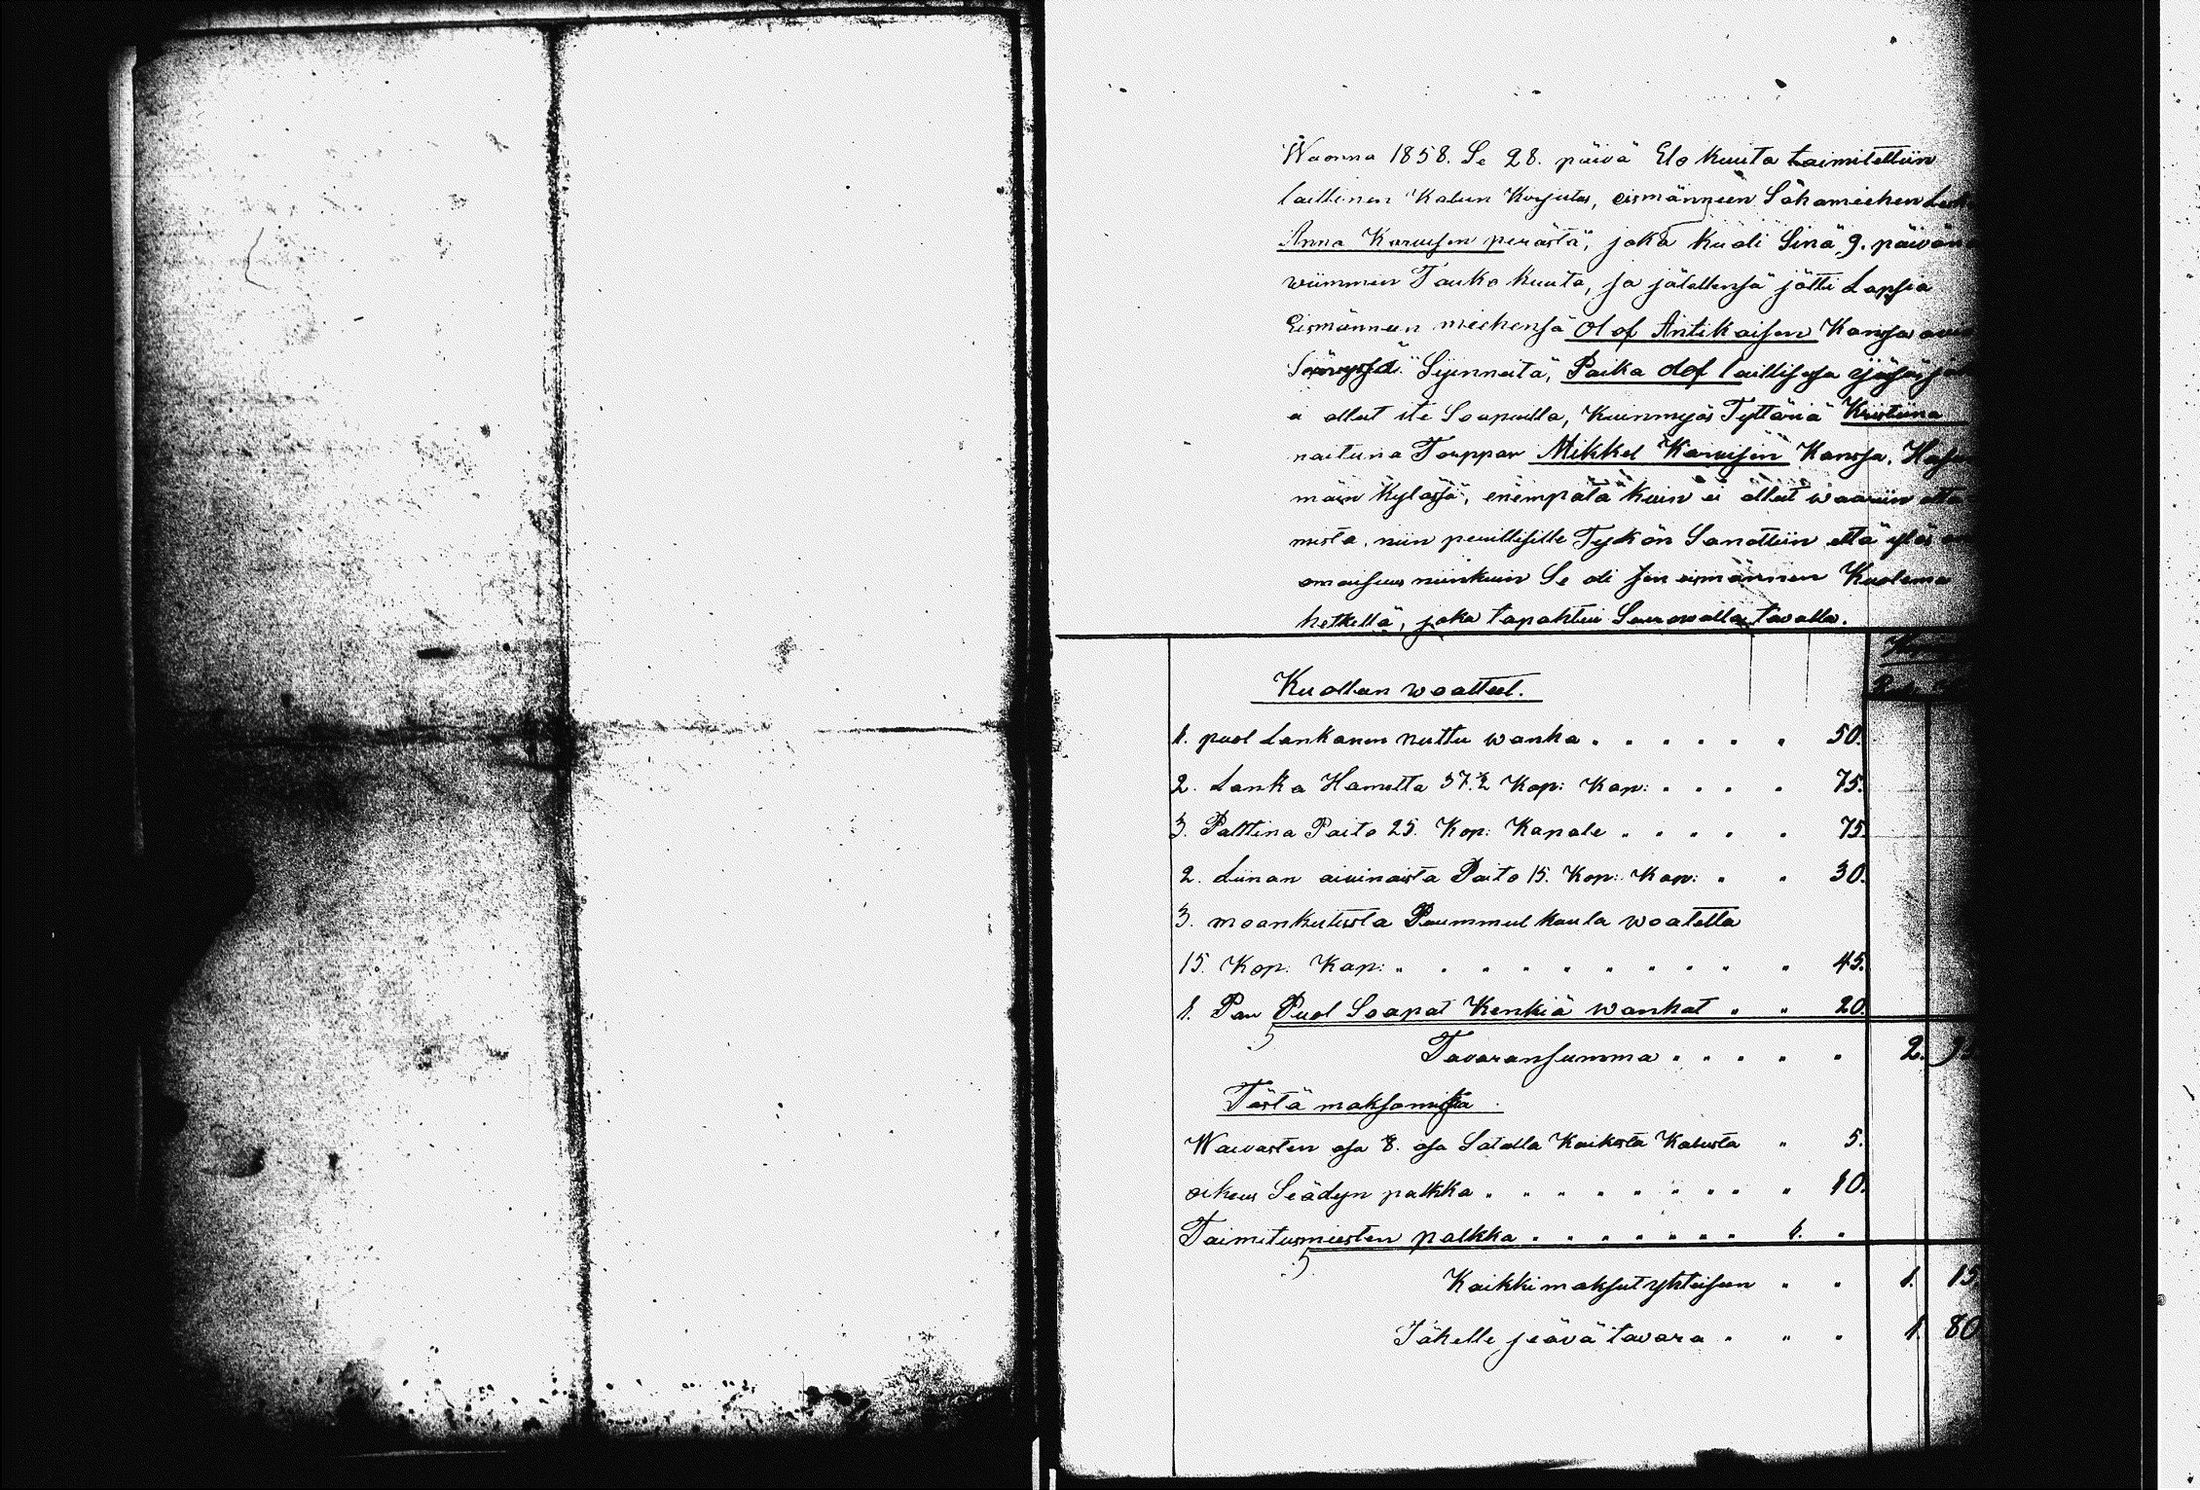 Wuonna 1858. Se 28. päivä Elo kuuta toimitettiin
laillinen Kalun Korjutus, eismänneen Söhamiehen Lesk
Anna Karvisen perästä, joka kuoli Sinä 9. päivän
wiimmen Touko kuuta, ja jälellensä jätti Lapsia
Eismänneen miehensä Olof Antikaisen Kansa
Syenneitä, Poika Olof laillisesa
ei ollut ite Soapuilla, Kuinmyös Tyttäriä Kristiina
naituna Torppar Mikkel Karvisen Kansa,
mäen kylässä, enempätä kuin ei ollut waariin otta-
mista, niin perillisille Tykön Sanottiin että ylös
omaisuus niinkuin Se oli sen eismännen Kuolema
hetkellä, joka tapahtui Seuraavalla tavalla.
Kuollun woatteet.
1. puol Lankanen nuttu wanha . . . . . . 50.
2. Lanka Hametta 37.½ Kop: Kap: . . . . 75.
3. Palttina Paito 25. Kop: Kapale . . . . . 75.
2. Liinan aivinaista Paito 15. Kop: Kap: . . 30.
3. moankutusta Puummul kaula woatetta
15. Kop: Kap: . . . . . . . . . . . 45.
1. Par Puol Soapat Kenkiä wanhat . . 20.
Tavaransumma . . . . . 2. 95
Tästä maksamisia.
Waivasten osa 8. osa Satalla Kaikesta Kalusta . 5.
oikeus Seädyn palkka . . . . . . . . . 10.
Toimitusmiesten palkka . . . . . . . . 1. .
Kaikki maksut yhteisen . . 1. 15
Jäkelle jeävä tavara . . . 1. 80